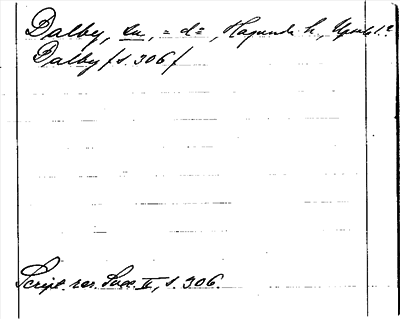 Dalby, sn, = d=, Hagunda h., Upsala l.
Dalby /s. 306/
Script. rer. Suec. II, s. 306.